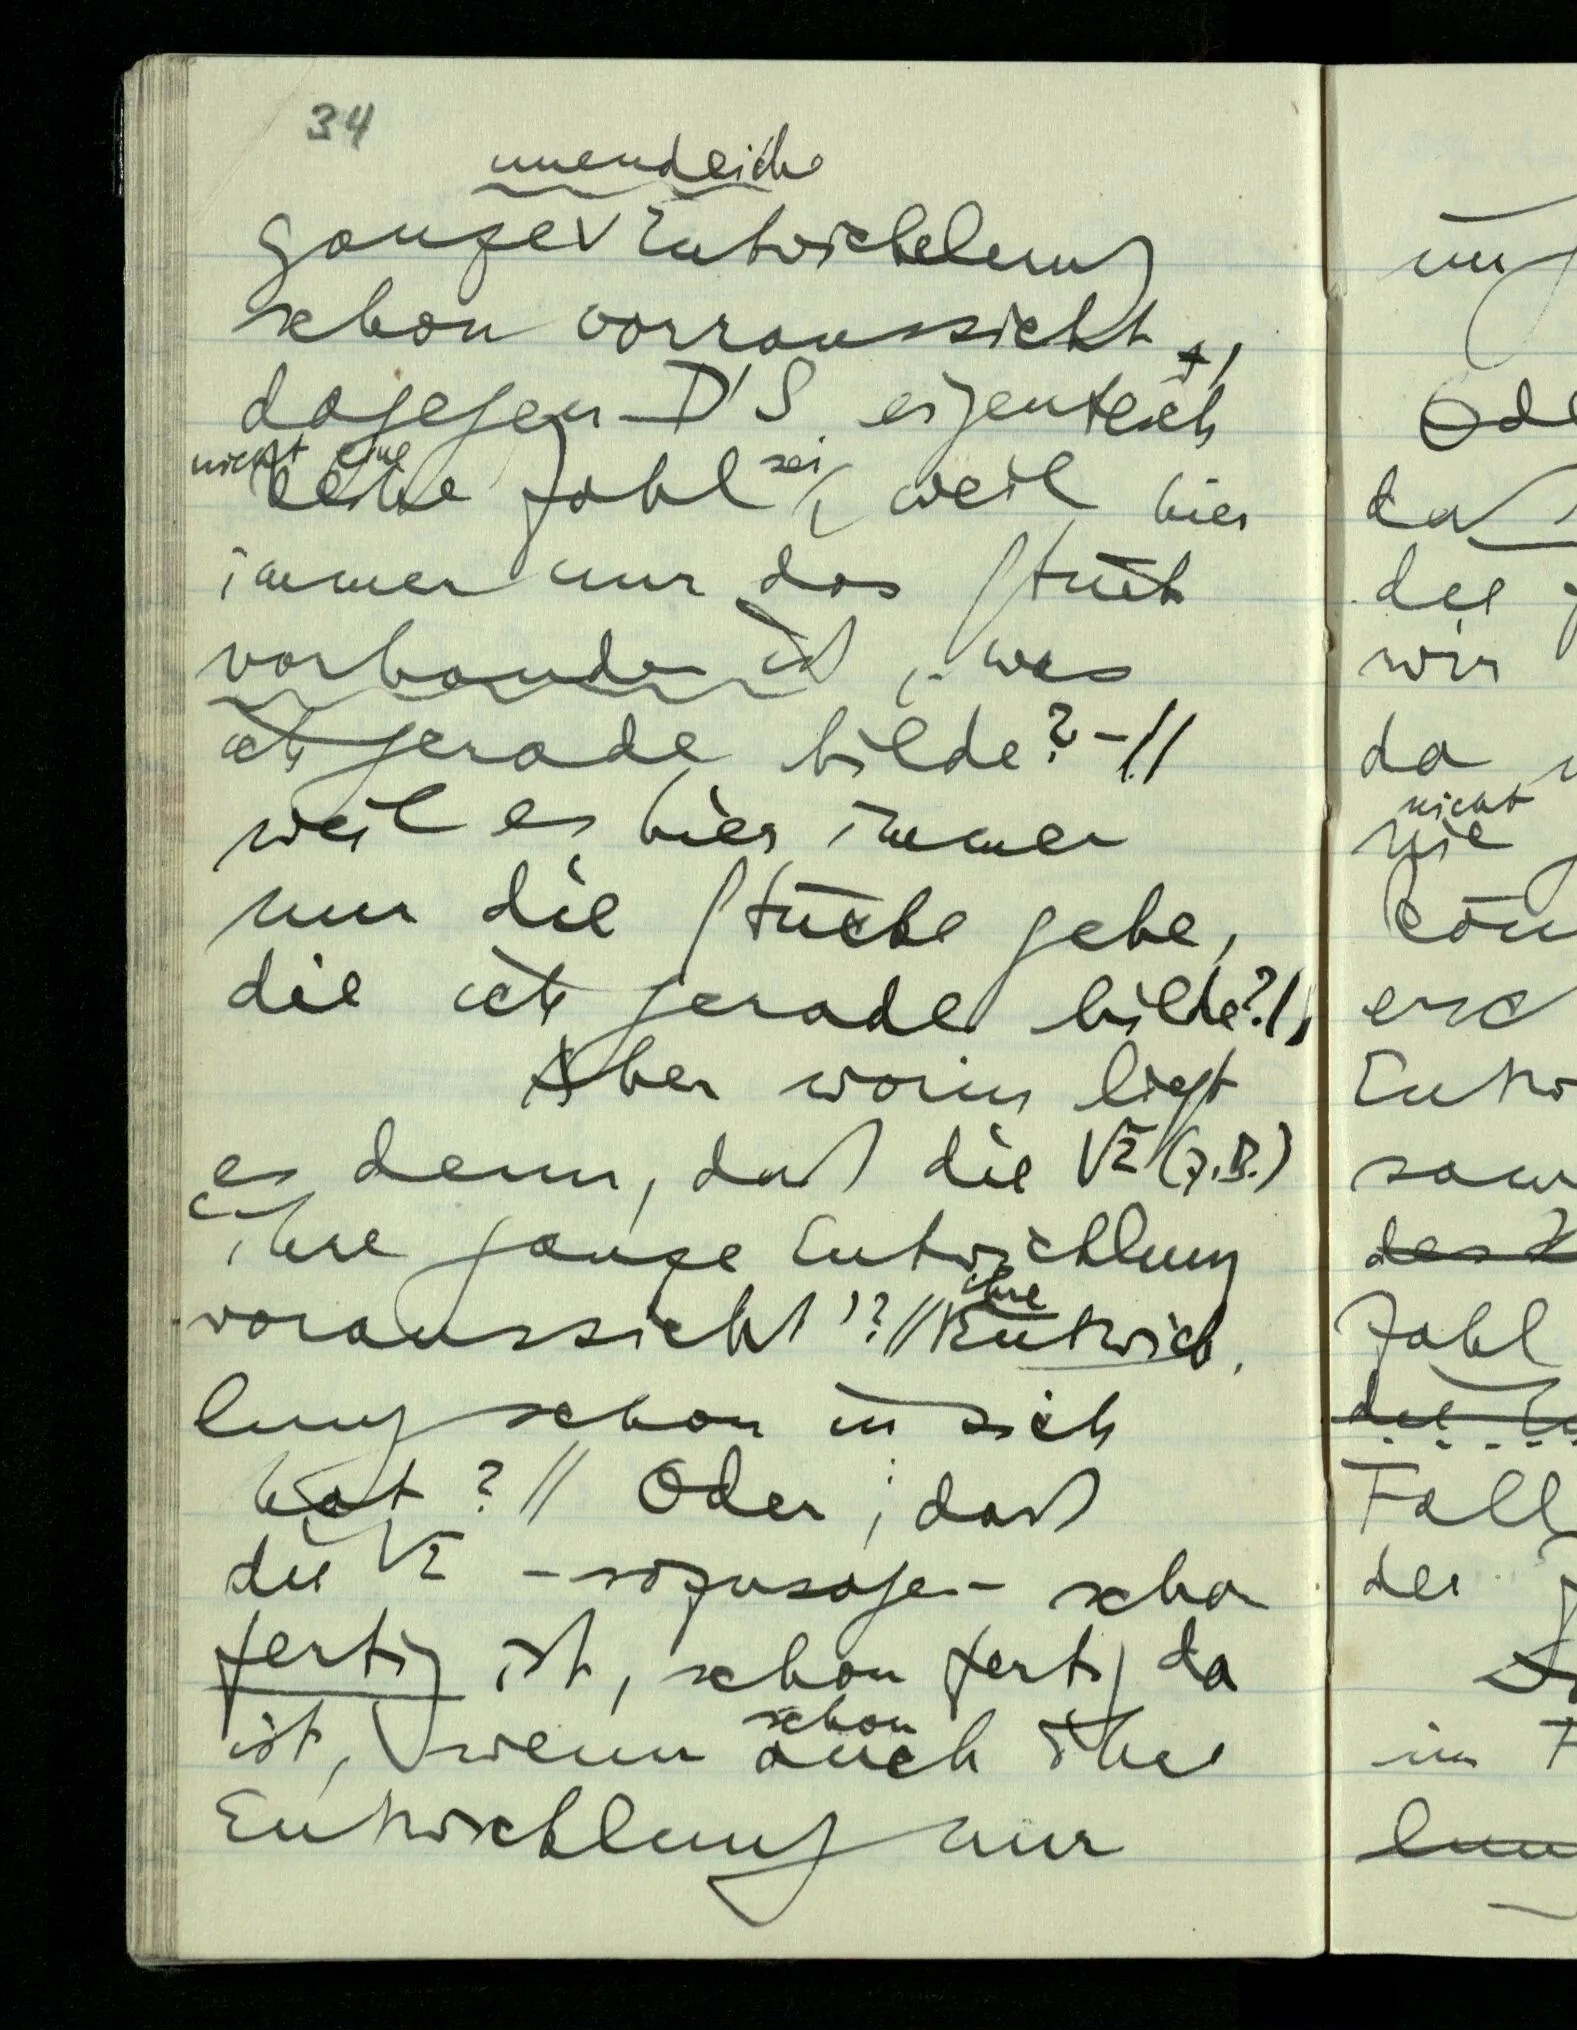 34
unendliche
ganze ∨ Entwickelung
schon vorraussieht,
dagegen D'S eigentlich
nicht eine
Zahl sei, weil hier
immer nur das Stück
vorhanden ist, was
ich gerade bilde? – //
weil es hier immer
nur die Stücke gebe,
die ich gerade bilde? //,
Aber worin liegt
es denn, daß die √2 (z.B.)
ihre ganze Entwicklung
voraussieht'? // ihre Entwick
lung schon in sich
hat? // Oder; daß
die √2 – sozusagen – schon
fertig ist, schon fertig da
schon
ist, wenn auch ihre
Entwicklung nur
un
Ode
da
die
wir
da
nicht
wie
kön
Entw
Zahl
Fall
der
im F